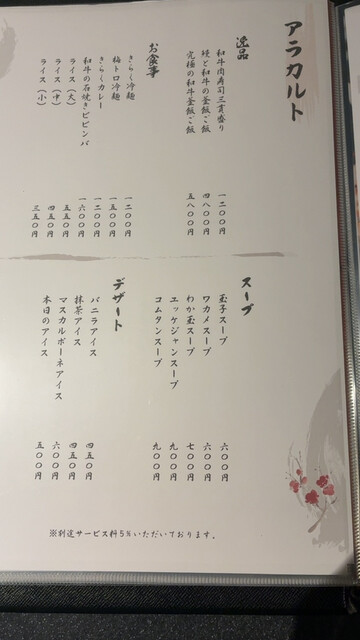 アラカルト
逸品
和牛肉寿司三貫盛り 一二〇〇円
鰻と和牛の釜飯ご飯 四八〇〇円
究極の和牛釜飯ご飯 五八〇〇円
お食事
きらく冷麺 一二〇〇円
梅トロ冷麺 一五〇〇円
きらくカレー 一二〇〇円
和牛の石焼きビビンバ 一六〇〇円
ライス（大） 五五〇円
ライス（中） 四五〇円
ライス（小） 三五〇円
スープ
玉子スープ 六〇〇円
ワカメスープ 六〇〇円
わか玉スープ 七〇〇円
ユッケジャンスープ 九〇〇円
コムタンスープ 九〇〇円
デザート
バニラアイス 四五〇円
抹茶アイス 四五〇円
マスカルポーネアイス 六〇〇円
本日のアイス 五〇〇円
※別途サービス料5%いただいております。